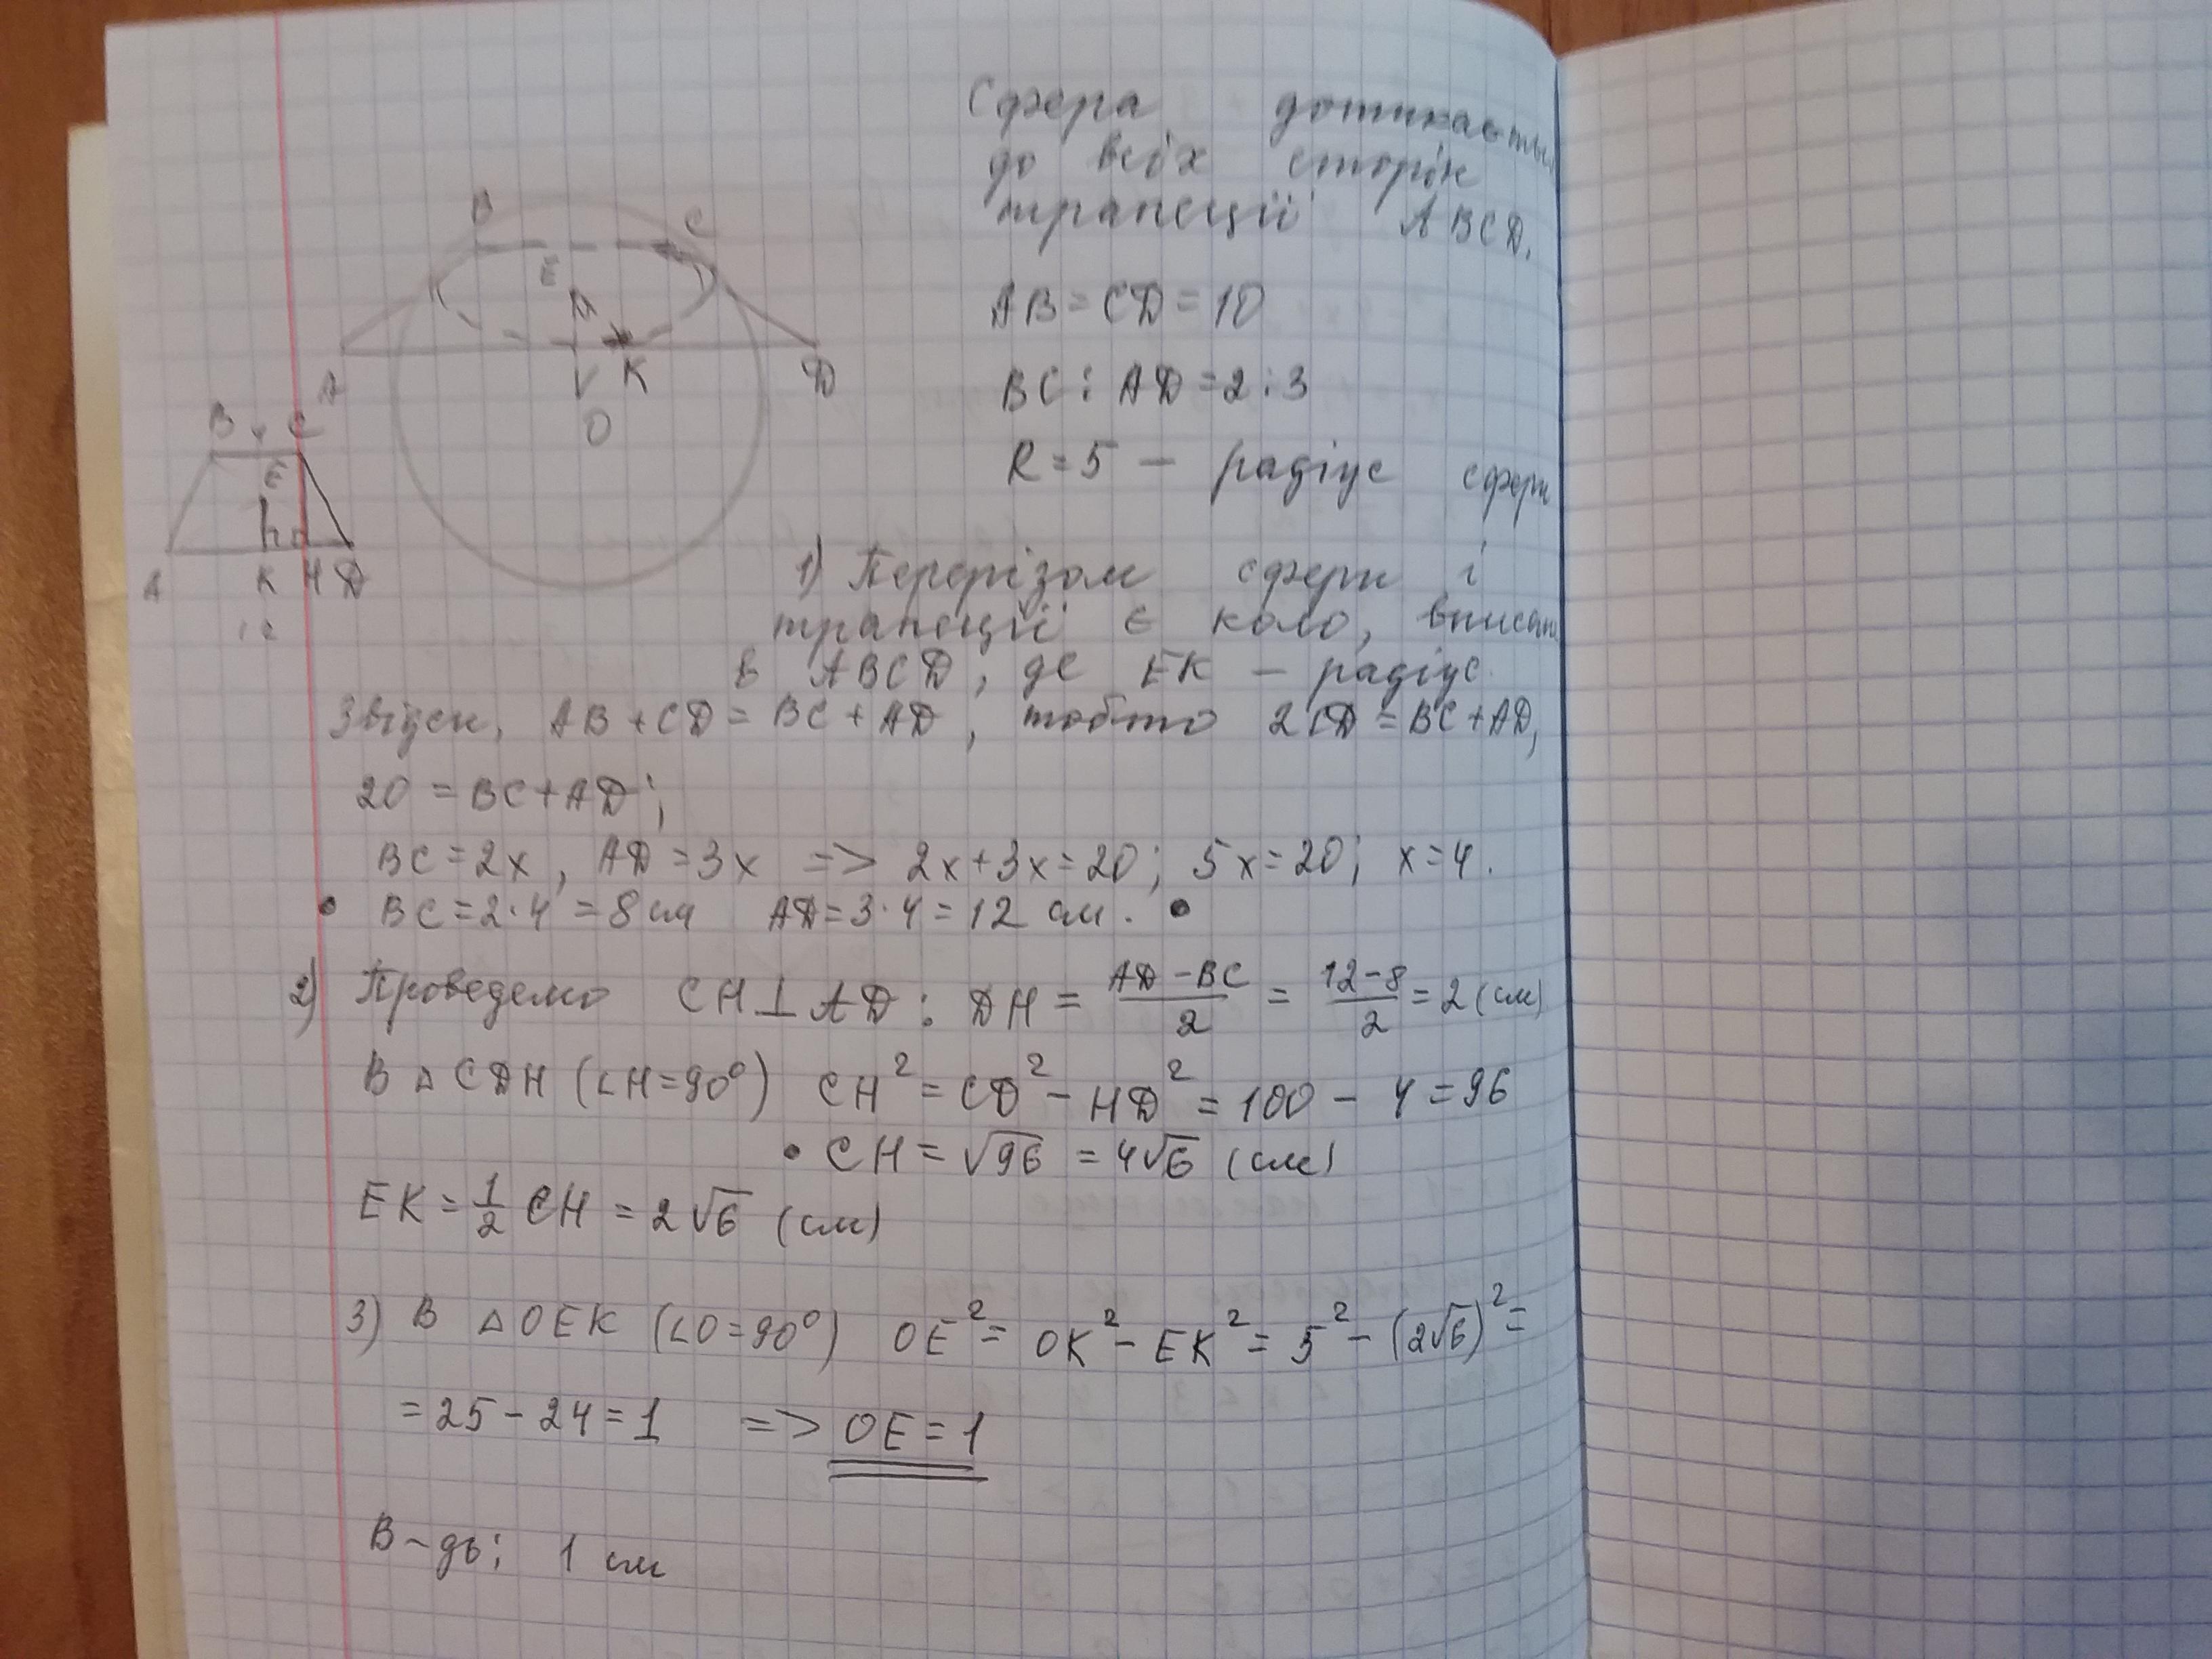 Сфера дотикається
до всіх сторін
трапеції ABCD.
B C
E
A K D
O
AB = CD = 10
BC : AD = 2 : 3
R = 5 – радіус сфери
B C
E
A K H D
12
1) Перерізом сфери і
трапеції є коло, вписане
в ABCD, де EK – радіус.
Звідси, AB + CD = BC + AD, тобто 2CD = BC + AD,
20 = BC + AD;
BC = 2x, AD = 3x => 2x + 3x = 20; 5x = 20; x = 4.
• BC = 2·4 = 8 см AD = 3·4 = 12 см. •
2) Проведемо CH ⊥ AD : DH = (AD – BC)/2 = (12 – 8)/2 = 2 (см)
В △ CDH (∠H = 90°) CH² = CD² – HD² = 100 – 4 = 96
• CH = √96 = 4√6 (см)
EK = 1/2 CH = 2√6 (см)
3) В △ OEK (∠O = 90°) OE² = OK² – EK² = 5² – (2√6)² =
= 25 – 24 = 1 => OE = 1
В-дь: 1 см